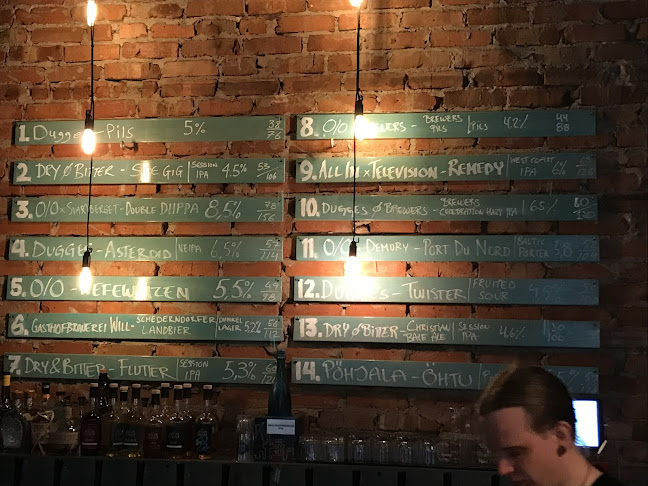 1. Dugges - Pils 5% 38 76
2. Dry & Bitter - Side Gig Session IPA 4.5% 53 106
3. O/O × Svartberget - Double DIIPPA 8,5% 78 156
4. Dugges - Asteroid NEIPA 6,5% 57 114
5. O/O - Hefeweizen 5,5%
6. Gasthofbrauerei Will - Schederndorfer Landbier Dunkel Lager 5.2% 56 112
7. Dry & Bitter - Flutter Session IPA 5,3%
8. O/O Brewers - Brewers Pils Pils 4.2% 44 88
9. All In × Television - Remedy West Coast IPA
10. Dugges & Brewers - Brewers Celebration Hazy IPA 6.5% 60
11. O/O Demory - Port Du Nord Baltic Porter 5,8
12. Dugges - Twister Fruited Sour 4,5%
13. Dry & Bitter - Christian Pale Ale Session IPA 4.6%
14. Põhjala - Öhtu